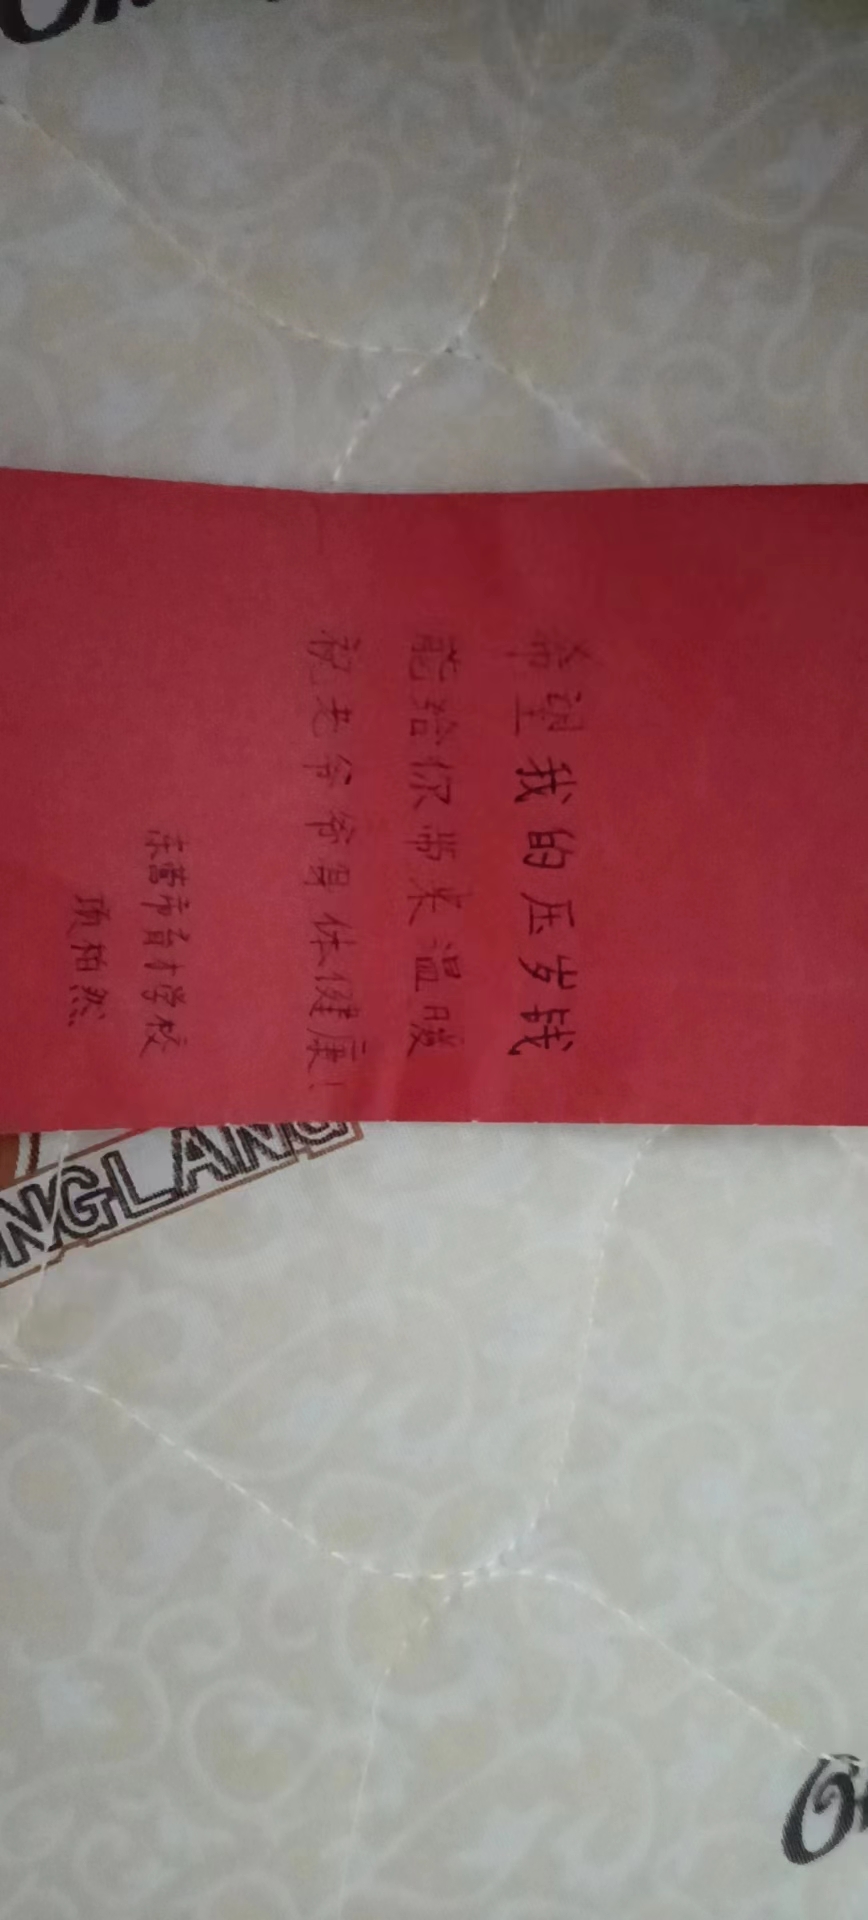 希望我的压岁钱
能给你带来温暖
祝老爷爷身体健康!
东营市育才学校
项柏然
NGLANG